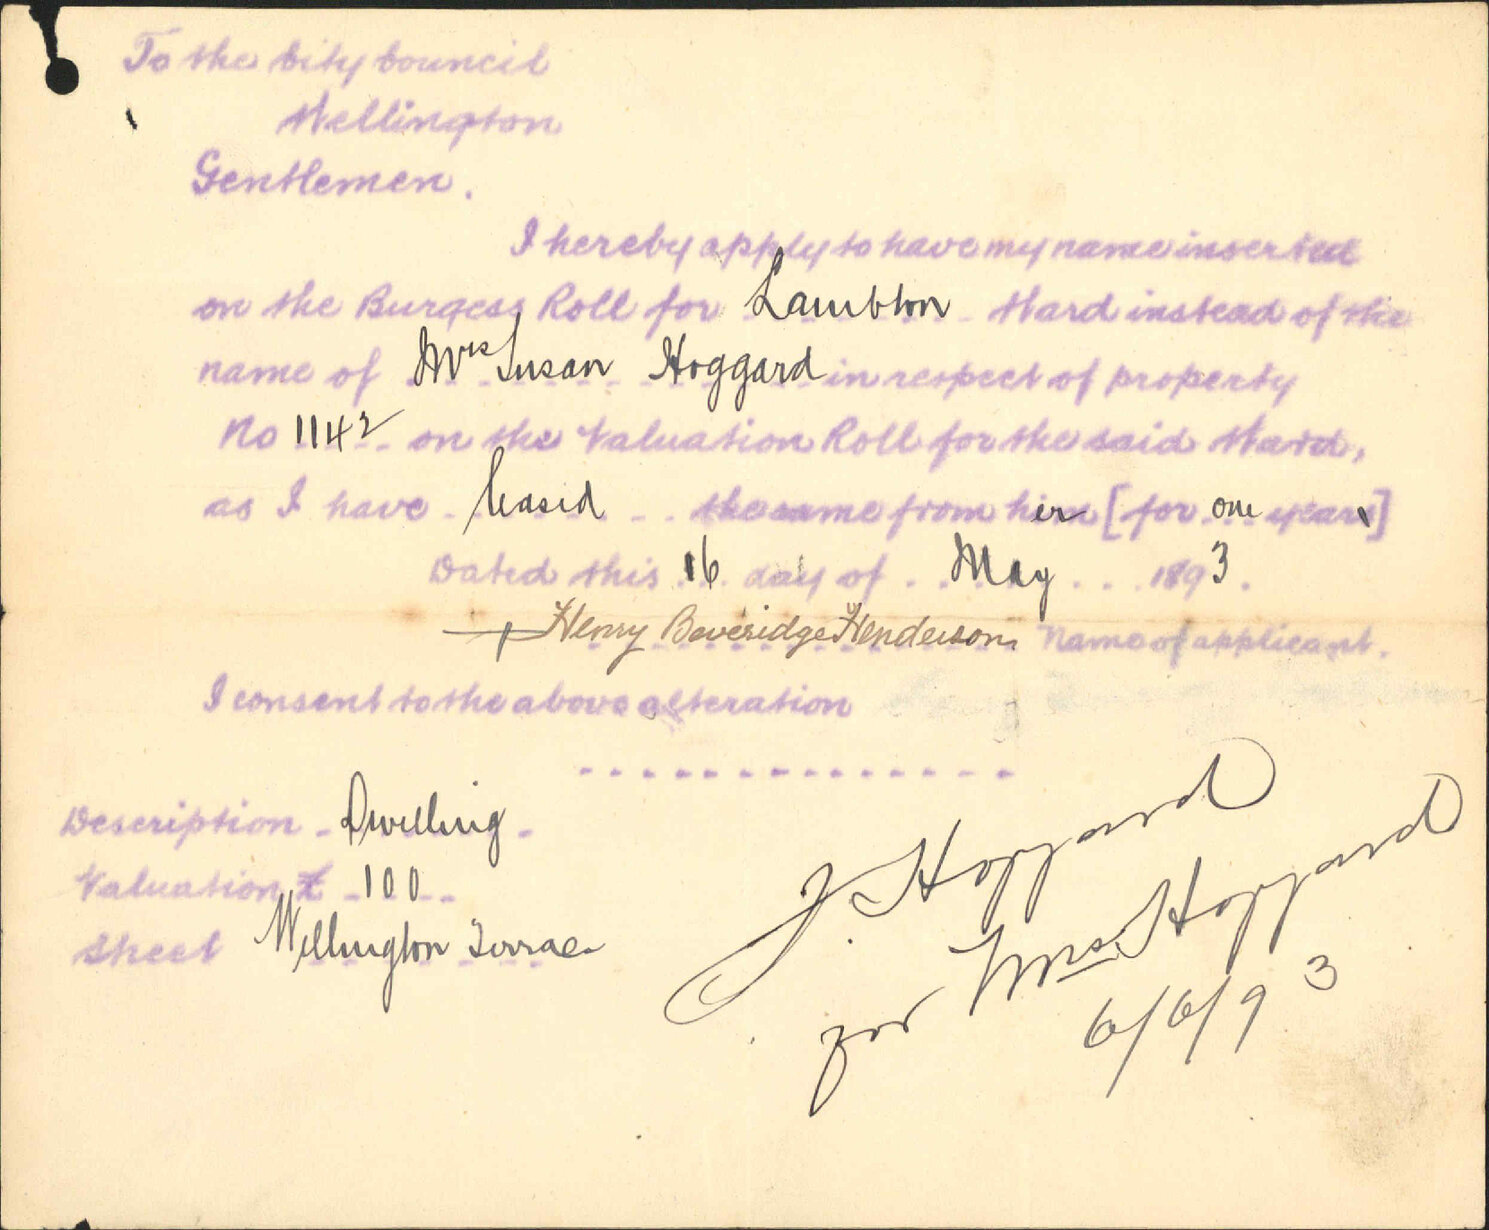 To the City Council
Wellington
Gentlemen.
I hereby apply to have my name inserted
on the Burgess Roll for Lambton Ward instead of the
name of Mrs Susan Hoggard in respect of property
No 1142 on the Valuation Roll for the said Ward,
as I have leased the same from her [for one year]
Dated this 16 day of May 1893.
Henry Beveridge Henderson Name of applicant.
I consent to the above alteration
Description Dwelling
Valuation £ 100
Street Wellington Terrace
J. Hoggard
for Mrs. Hoggard
6/6/93